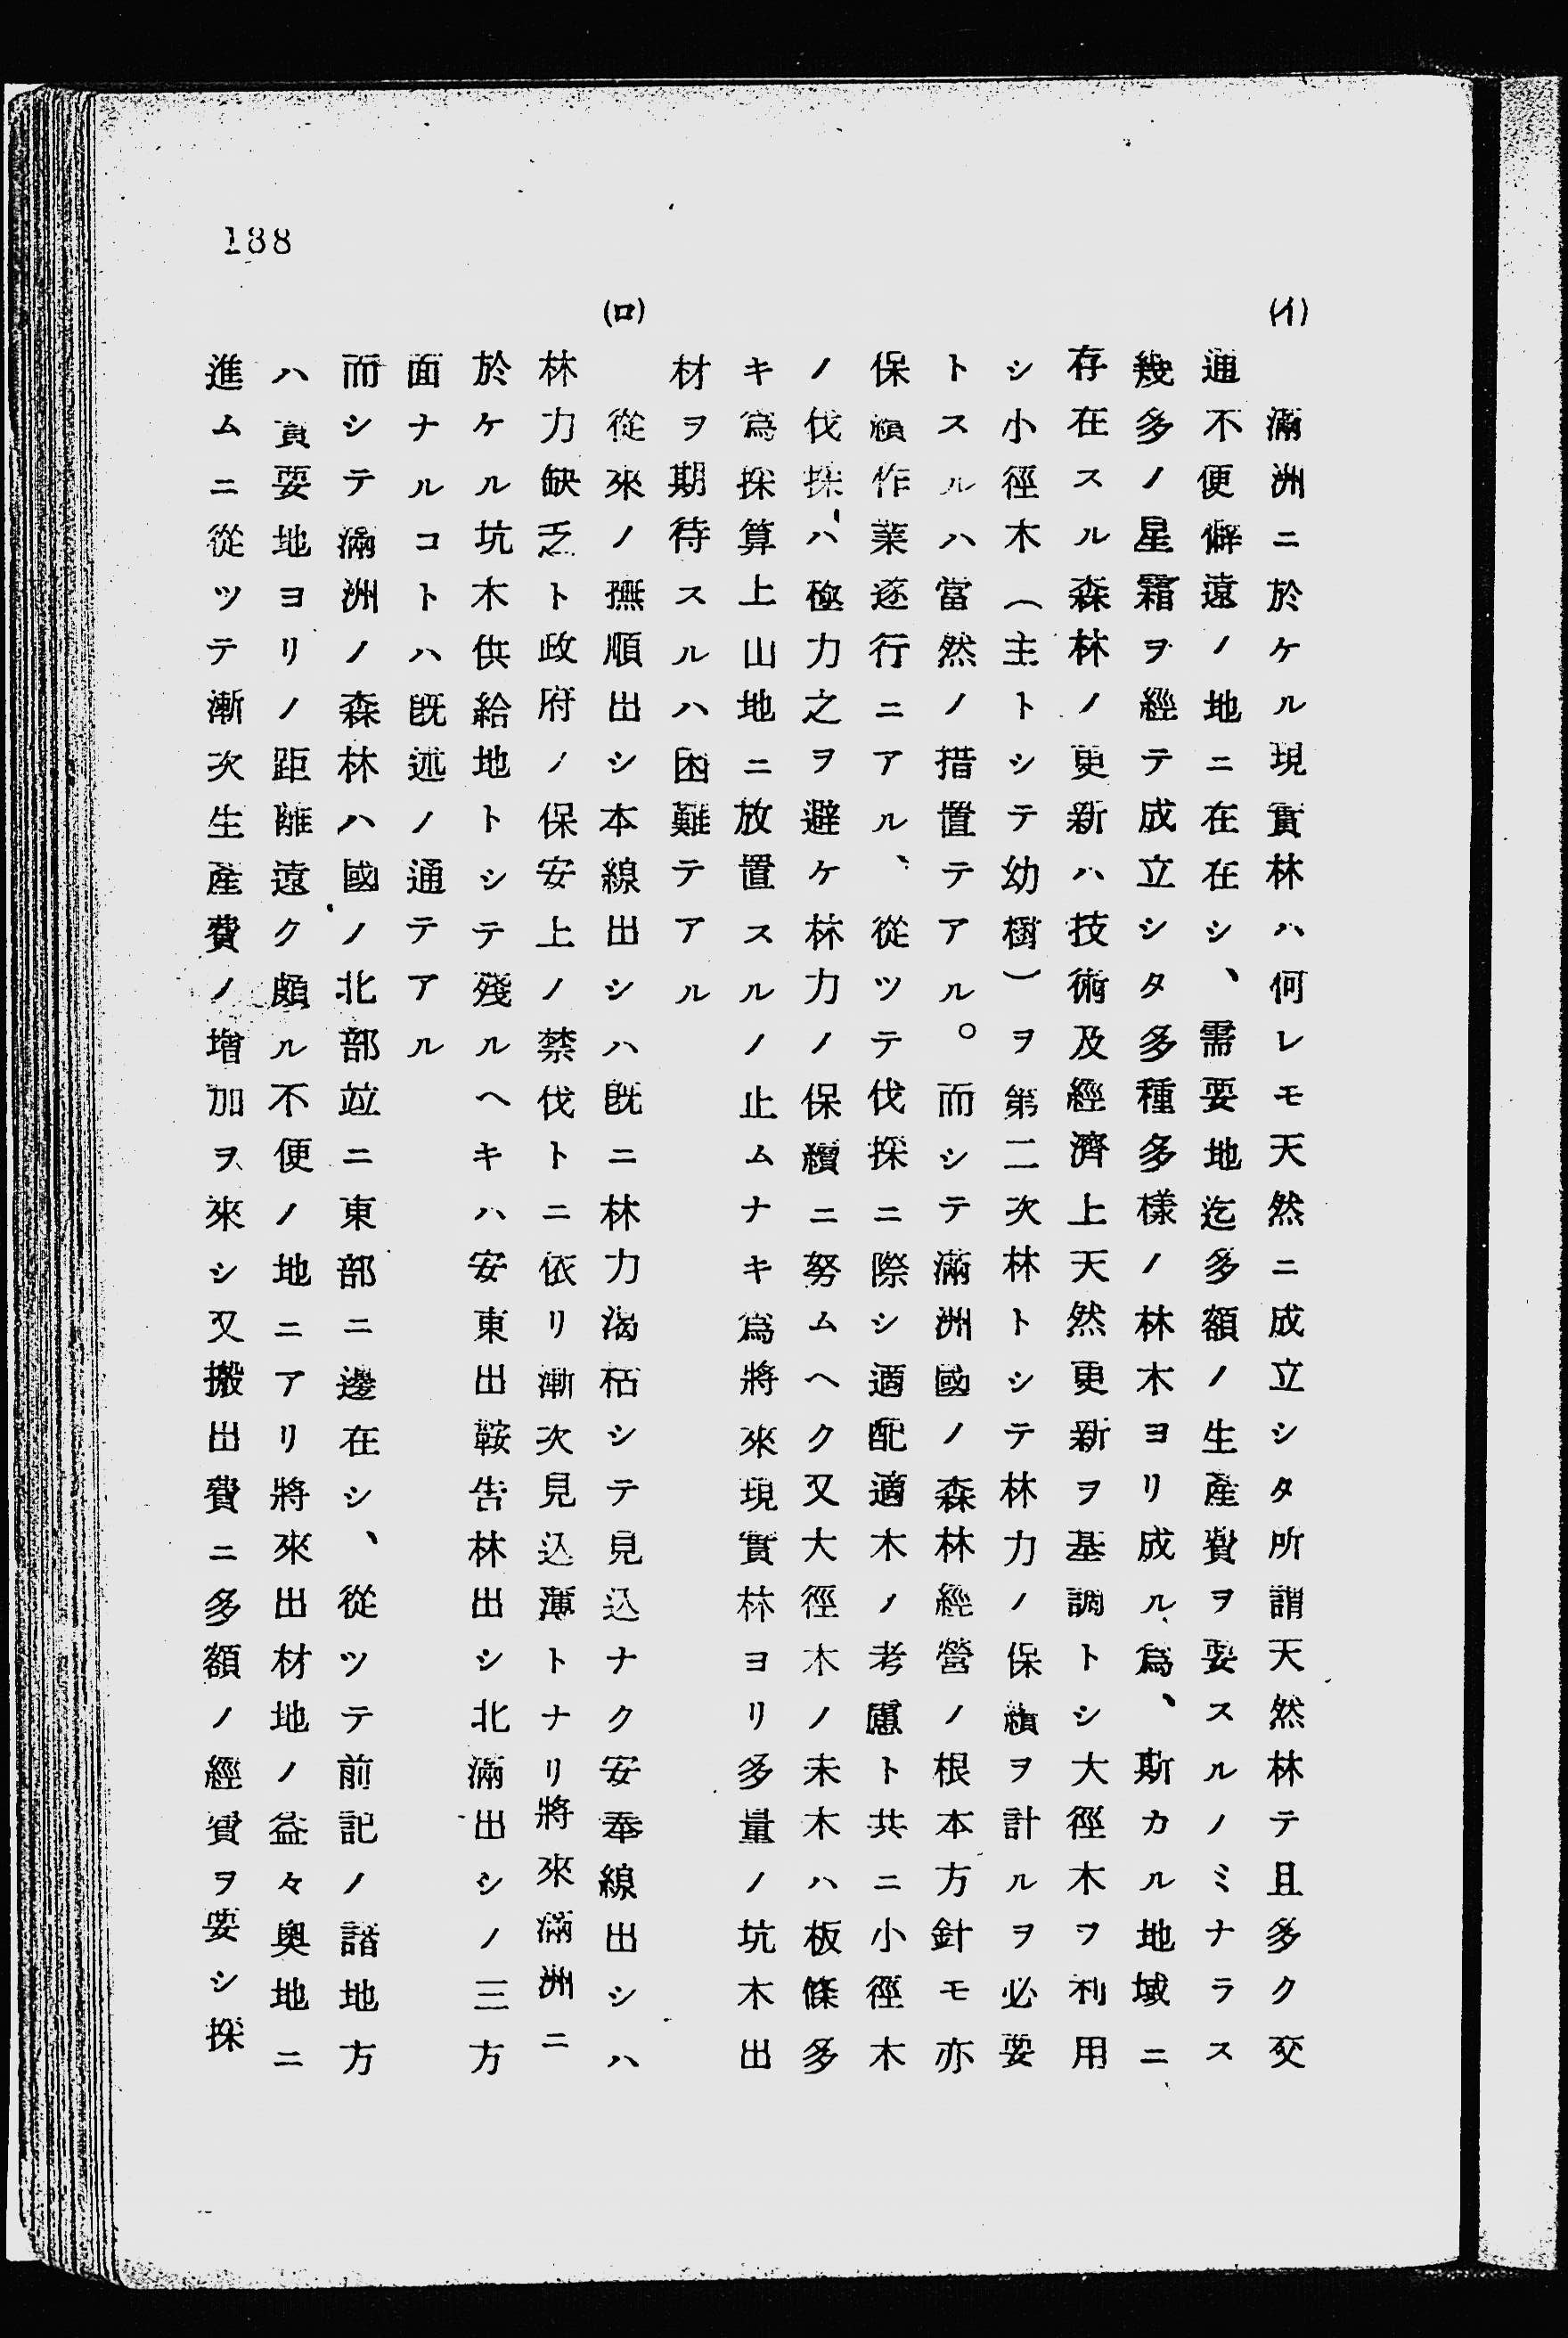 188
(イ)
滿洲ニ於ケル現實林ハ何レモ天然ニ成立シタ所謂天然林テ且多ク交
通不便僻遠ノ地ニ在在シ、需要地迄多額ノ生産費ヲ要スルノミナラス
幾多ノ星霜ヲ經テ成立シタ多種多樣ノ林木ヨリ成ル爲、斯カル地域ニ
存在スル森林ノ更新ハ技術及經濟上天然更新ヲ基調トシ大徑木ヲ利用
シ小徑木（主トシテ幼樹）ヲ第二次林トシテ林力ノ保續ヲ計ルヲ必要
トスルハ當然ノ措置テアル。而シテ滿洲國ノ森林經營ノ根本方針モ亦
保續作業逐行ニアル、從ツテ伐採ニ際シ適配適木ノ考慮ト共ニ小徑木
ノ伐採ハ極力之ヲ避ケ林力ノ保續ニ努ムヘク又大徑木ノ末木ハ板條多
キ爲採算上山地ニ放置スルノ止ムナキ爲將來現實林ヨリ多量ノ坑木出
材ヲ期待スルハ困難テアル
(ロ)
從來ノ撫順出シ本線出シハ既ニ林力渴枯シテ見込ナク安奉線出シハ
林力缺乏ト政府ノ保安上ノ禁伐トニ依リ漸次見込薄トナリ將來滿洲ニ
於ケル坑木供給地トシテ殘ルヘキハ安東出鞍吿林出シ北滿出シノ三方
面ナルコトハ既述ノ通テアル
而シテ滿洲ノ森林ハ國ノ北部竝ニ東部ニ邊在シ、從ツテ前記ノ諸地方
ハ需要地ヨリノ距離遠ク頗ル不便ノ地ニアリ將來出材地ノ益々奥地ニ
進ムニ從ツテ漸次生產費ノ增加ヲ來シ又搬出費ニ多額ノ經費ヲ要シ採